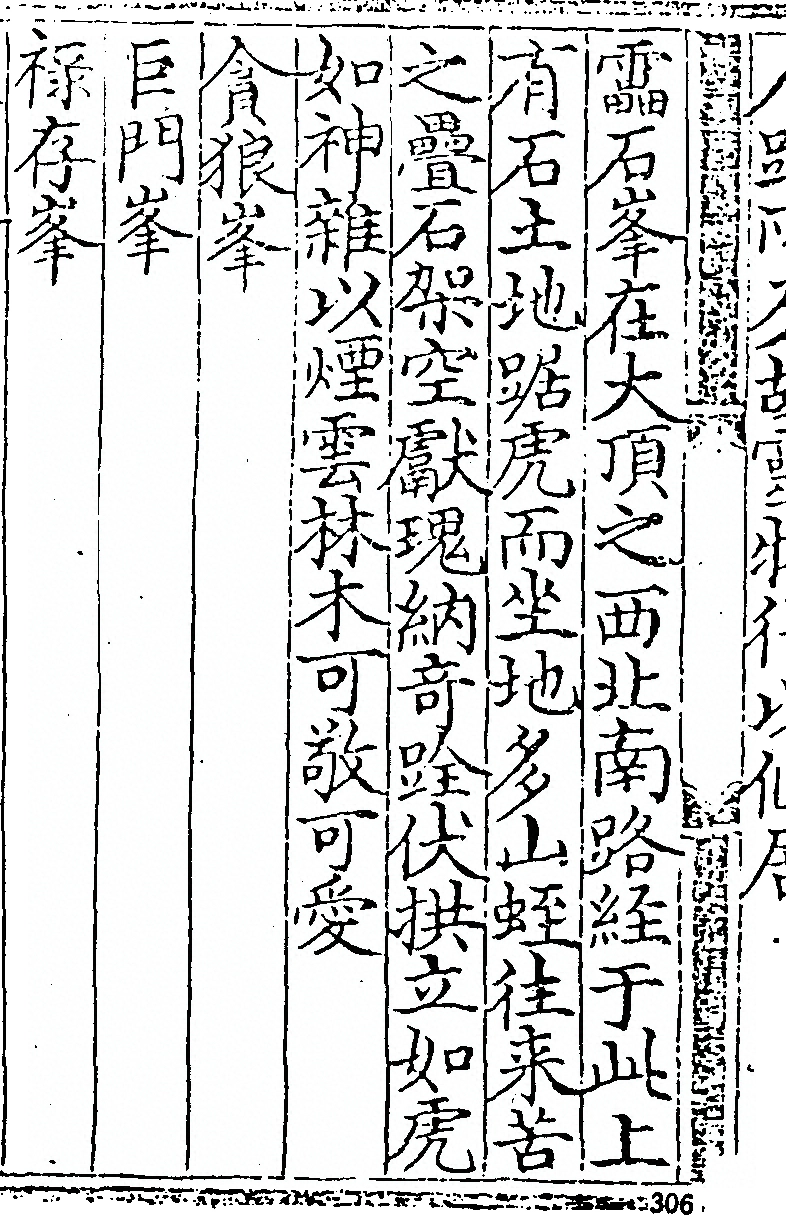 靁石峯在大頂之西北南路經于此上
有石土地踞虎而坐地多山蛭往来苦
之疊石架空獻瑰納奇跧伏拱立如虎
如神雜以煙雲林木可敬可愛
貪狼峯
巨門峯
禄存峯
306